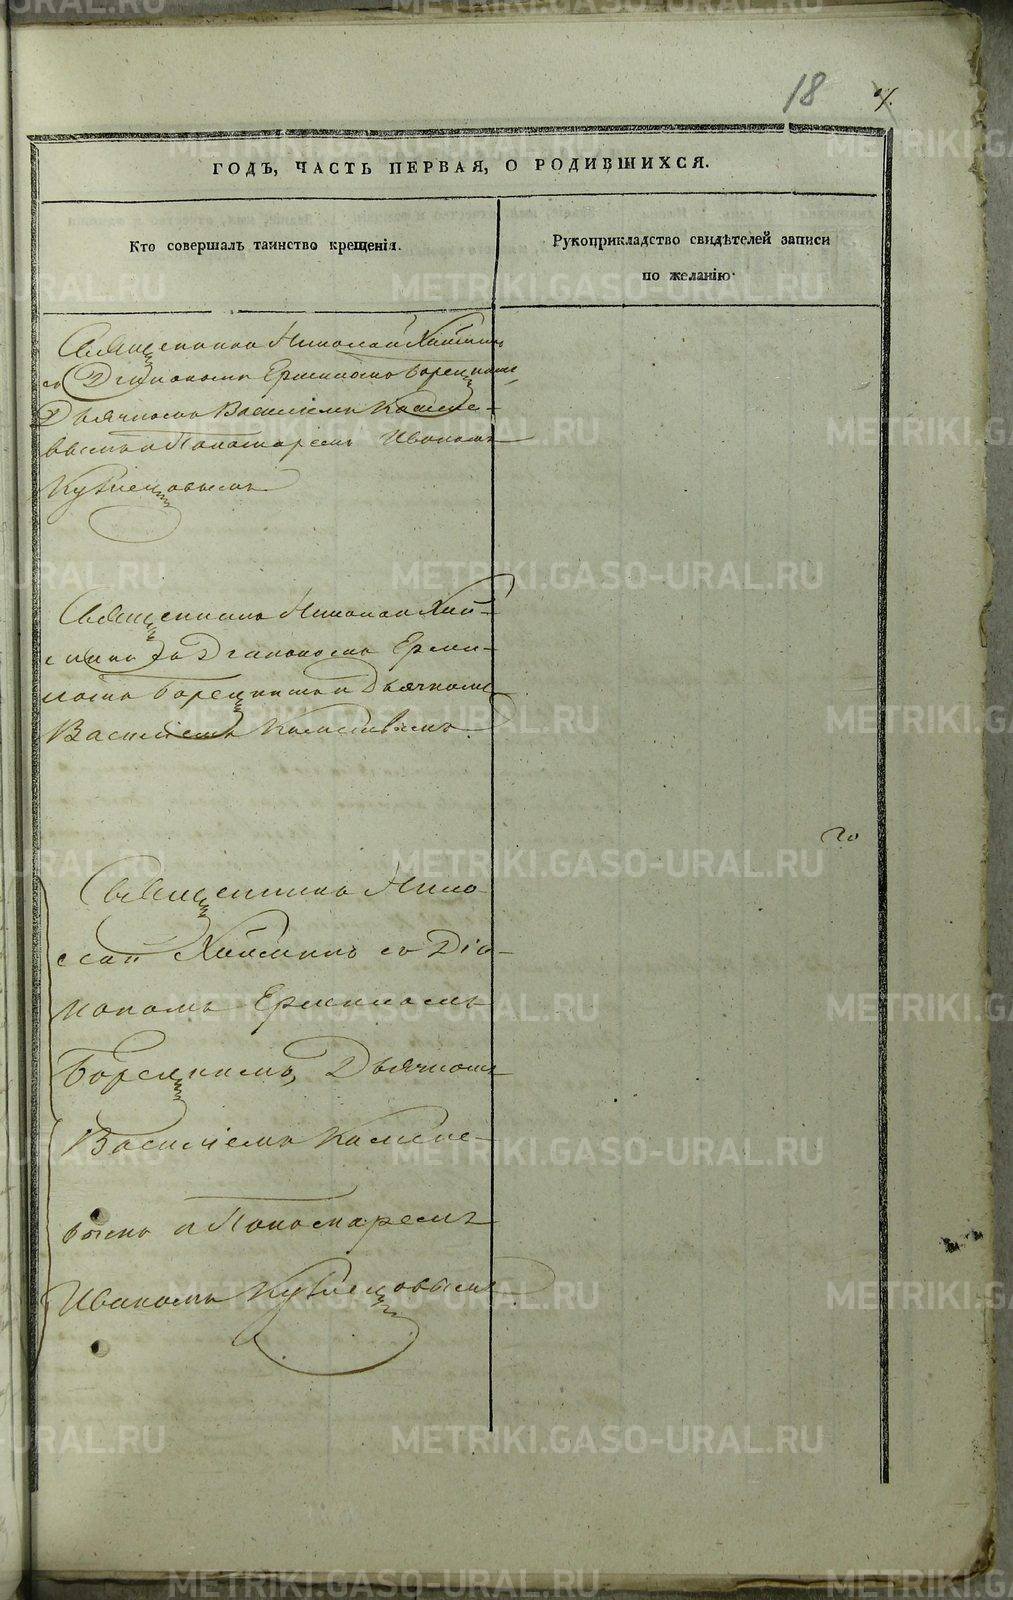 18
ГОДЪ, ЧАСТЬ ПЕРВАЯ, О РОДИВШИХСЯ.
Кто совершалъ таинство крещенія.
Рукоприкладство свидѣтелей записи
по желанію
Священникъ Николай
со Діакономъ Ермиломъ Борецкимъ
Дьячкомъ Василіемъ Камене-
вымъ и Пономаремъ Иваномъ
Кузнецовымъ
Священникъ Николай Хай-
со Діакономъ Ерми-
ломъ Борецкимъ и Дьячкомъ
Василіемъ Каменевымъ
Священникъ Нико
лай со Діа-
кономъ Ермиломъ
Борецкимъ, Дьячкомъ
Василіемъ Камене-
вымъ и Пономаремъ
Иваномъ Кузнецовымъ
METRIKI.GASO-URAL.RU